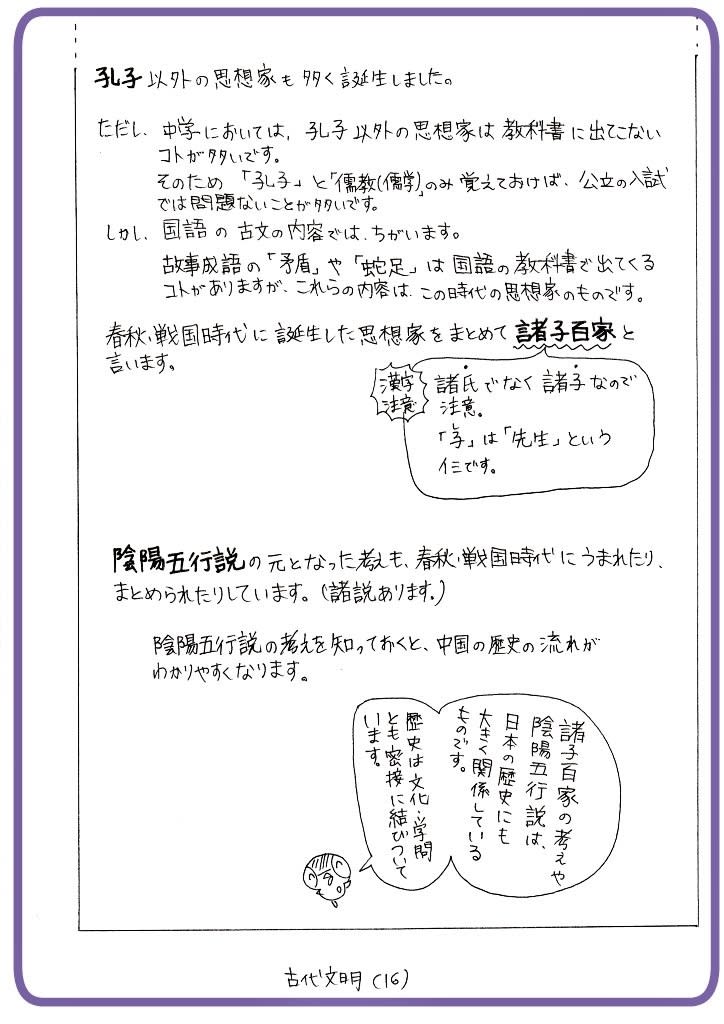 孔子以外の思想家も多く誕生しました。
ただし、中学においては、孔子以外の思想家は教科書に出てこない
コトが多いです。
そのため「孔子」と「儒教(儒学)」のみ覚えておけば、公立の入試
では問題ないことが多いです。
しかし、国語の古文の内容では、ちがいます。
故事成語の「矛盾」や「蛇足」は国語の教科書で出てくる
コトがありますが、これらの内容は、この時代の思想家のものです。
春秋・戦国時代に誕生した思想家をまとめて諸子百家と
言います。
漢字
注意
諸氏でなく諸子なので
注意。
「子」は「先生」という
イミです。
陰陽五行説の元となった考えも、春秋・戦国時代にうまれたり、
まとめられたりしています。(諸説あります。)
陰陽五行説の考えを知っておくと、中国の歴史の流れが
わかりやすくなります。
諸子百家の考えや
陰陽五行説は、
日本の歴史にも
大きく関係している
ものです。
歴史は文化・学問
とも密接に結びついて
います。
古代文明(16)